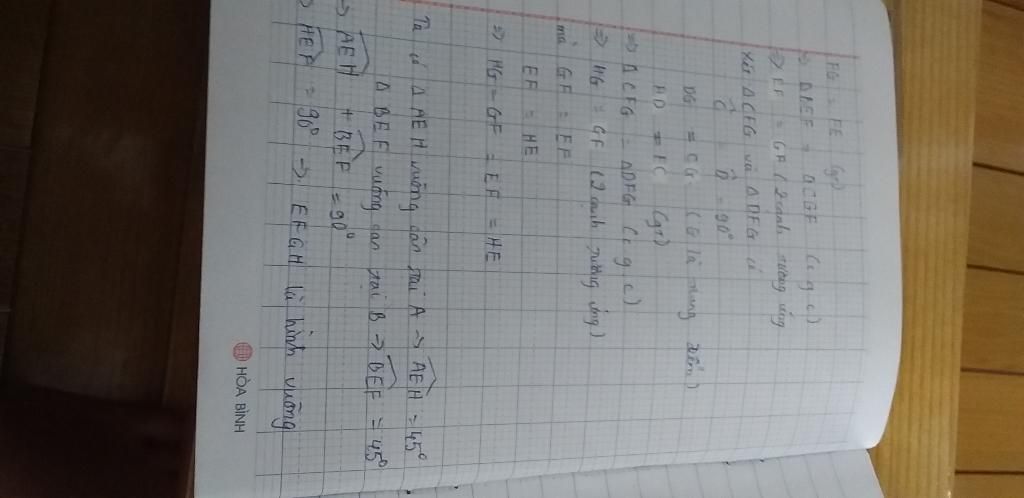 FG = FE (gt)
⇒ ΔBEF = ΔCGF (c g c)
⇒ EF = GF (2 cạnh tương ứng
Xét ΔCFG và ΔDFG có
Ĉ = D̂ = 90°
DG = CG (G là trung điểm)
HD = FC (gt)
⇒ ΔCFG = ΔDFG (c g c)
⇒ HG = GF (2 cạnh tương ứng)
mà GF = EF
EF = HE
⇒ HG = GF = EF = HE
Ta có ΔAEH vuông cân tại A → AEH = 45°
ΔBEF vuông cân tại B → BEF = 45°
⇒ AEH + BEF = 90°
⇒ HEF = 90° → EFGH là hình vuông
HÒA BÌNH